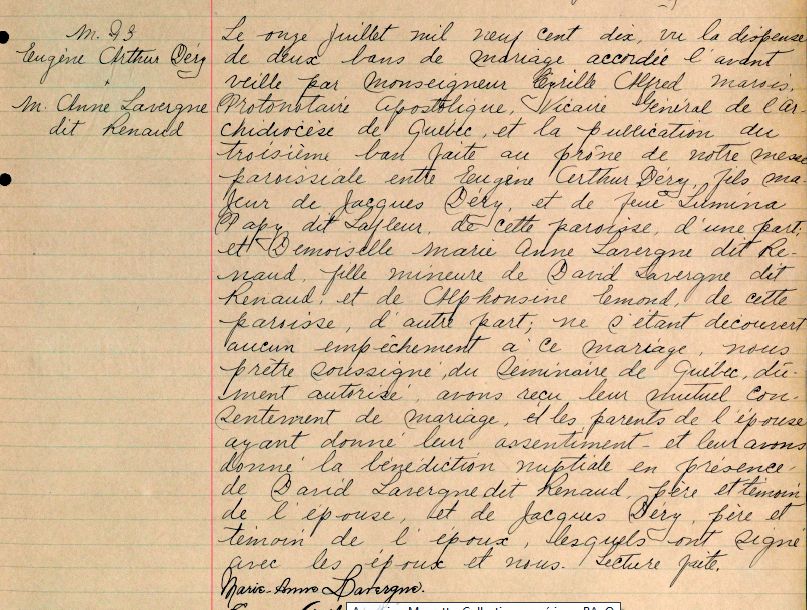 M. 93
Eugène Arthur Déry
&
M. Anne Lavergne
dit Renaud
Le onze Juillet mil neuf cent dix, vu la dispense
de deux bans de mariage accordée l'avant
veille par Monseigneur Cyrille Alfred Marois,
Protonotaire Apostolique, Vicaire Général de l'Ar-
chidiocèse de Québec, et la publication du
troisième ban faite au prône de notre messe
paroissiale entre Eugène Arthur Déry, fils ma-
jeur de Jacques Déry, et de feue Lumina
Papy dit Lafleur, de cette paroisse, d'une part;
et Demoiselle Marie Anne Lavergne dit Re-
naud, fille mineure de David Lavergne dit
Renaud, et de Alphonsine Emond, de cette
paroisse, d'autre part; ne s'étant decouvert
aucun empêchement à ce mariage, nous
prêtre soussigné, du Séminaire de Québec, dû-
ment autorisé, avons reçu leur mutuel con-
sentement de mariage, et les parents de l'épouse
ayant donné leur assentiment - et leur avons
donné la bénédiction nuptiale en présence
de David Lavergne dit Renaud, père et témoin
de l'épouse, et de Jacques Déry, père et
témoin de l'époux, lesquels ont signé
avec les époux et nous. Lecture faite.
Marie-Anne Lavergne.